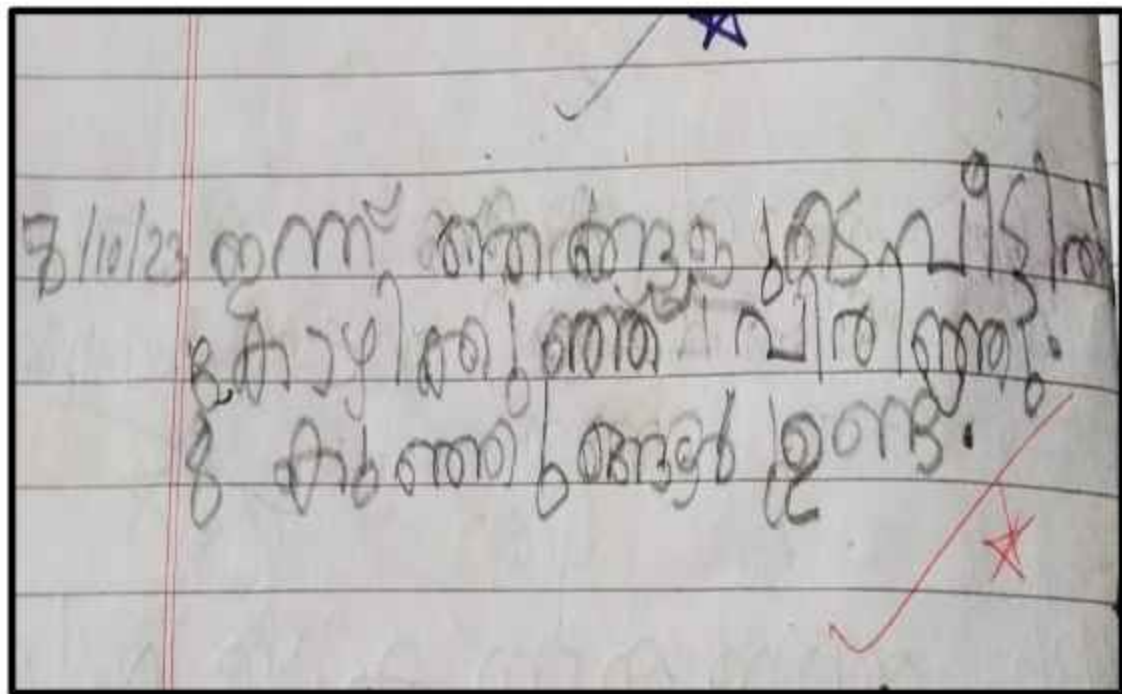 8/10/23 ഇന്ന് ഞങ്ങളുടെ വീട്ടിൽ
കോഴിക്കുഞ്ഞ് വിരിഞ്ഞു.
8 കുഞ്ഞുങ്ങൾ ഉണ്ട്.